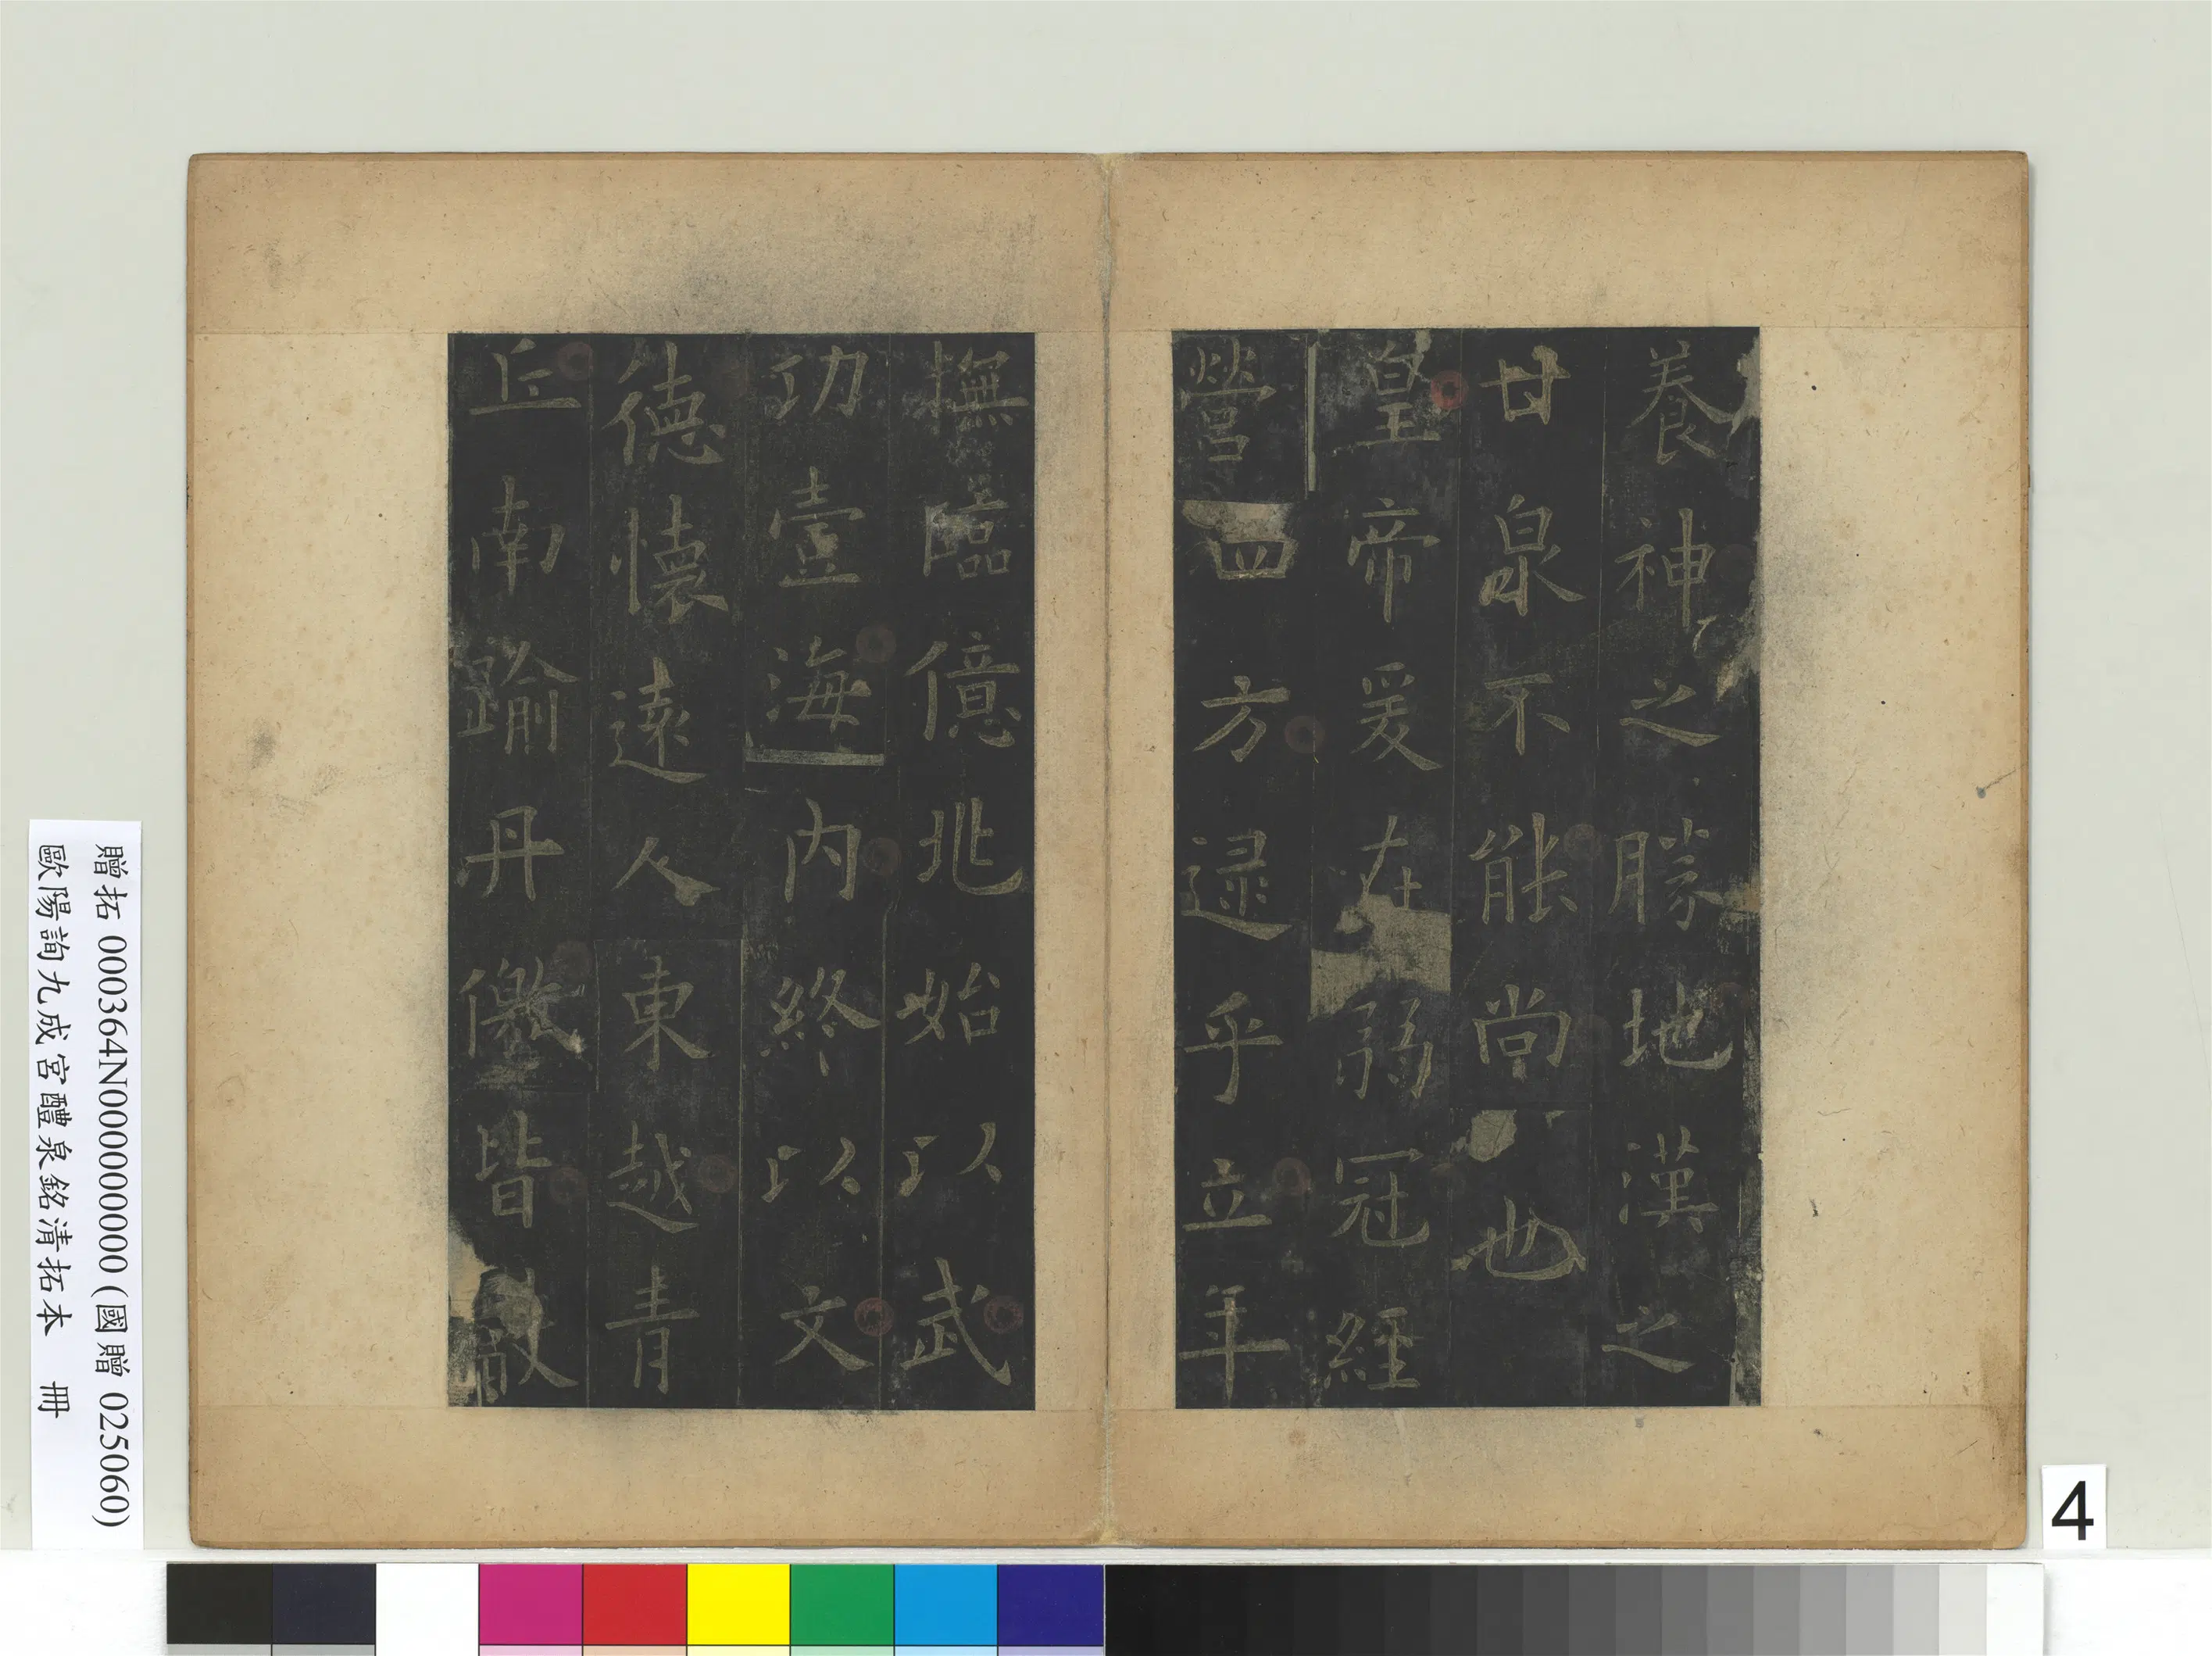 養神之勝地漢之
甘泉不能尚也
皇帝爰在弱冠經
營四方逮乎立年
撫臨億兆始以武
功壹海內終以文
德懷遠人東越青
丘南踰丹儌皆獻
贈拓 000364N000000000 (國贈 025060)
歐陽詢九成宮醴泉銘清拓本 冊
4